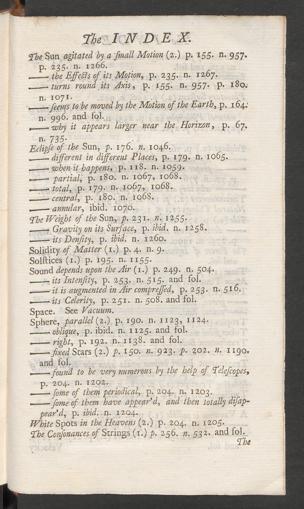 The INDEX.
The Sun agitated by a small Motion (2.) p. 155. n. 957.
p. 235. n. 1266.
—— the Effects of its Motion, p. 235. n. 1267.
—— turns round its Axis, p. 155. n. 957. p. 180.
n. 1071.
—— seems to be moved by the Motion of the Earth, p. 164.
n. 996. and fol.
—— why it appears larger near the Horizon, p. 67.
n. 735.
Eclipse of the Sun, p. 176. n. 1046.
—— different in different Places, p. 179. n. 1065.
—— when it happens, p. 118. n. 1059.
—— partial, p. 180. n. 1067, 1068.
—— total, p. 179. n. 1067, 1068.
—— central, p. 180. n. 1068.
—— annular, ibid. 1070.
The Weight of the Sun, p. 231. n. 1255.
—— Gravity on its Surface, p. ibid. n. 1258.
—— its Density, p. ibid. n. 1260.
Solidity of Matter (1.) p. 4. n. 9.
Solstices (1.) p. 195. n. 1155.
Sound depends upon the Air (1.) p. 249. n. 504.
—— its Intensity, p. 253. n. 515. and fol.
—— it is augmented in Air compressed, p. 253. n. 516.
—— its Celerity, p. 251. n. 508. and fol.
Space. See Vacuum.
Sphere, parallel (2.) p. 190. n. 1123, 1124.
—— oblique, p. ibid. n. 1125. and fol.
—— right, p. 192. n. 1138. and fol.
—— fixed Stars (2.) p. 150. n. 923. p. 202. n. 1190.
and fol.
—— found to be very numerous by the help of Telescopes,
p. 204. n. 1202.
—— some of them periodical, p. 204. n. 1203.
—— some of them have appear'd, and then totally disap-
pear'd, p. ibid. n. 1204.
White Spots in the Heavens (2.) p. 204. n. 1205.
The Consonances of Strings (1.) p. 256. n. 532. and fol.
The